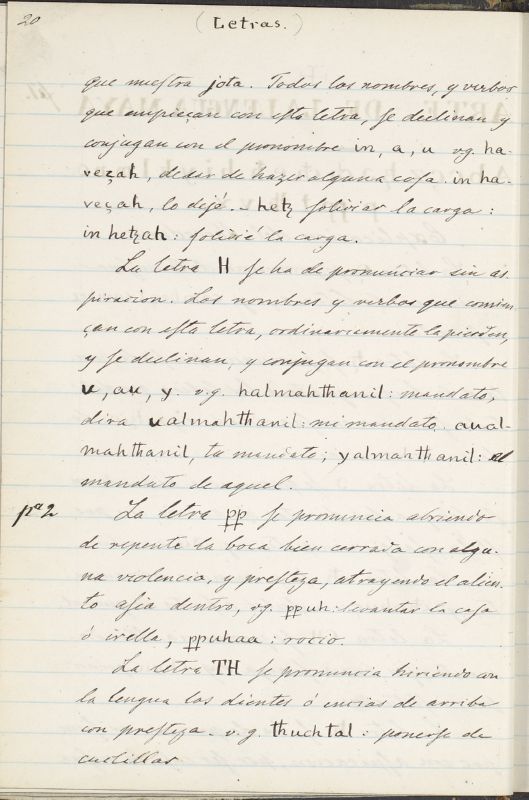 20
(Letras.)
que nueſtra jota. Todos los nombres, y verbos
que empieçan con eſta letra, ſe declinan y
conjugan con el pronombre in, a, u vg. ha-
veçah, dedir de hazer alguna coſa. in ha-
veçah, lo dejé. - hetz ſoliviar la carga:
in hetzah: ſolivié la carga.
La letra H ſe ha de pronunciar sin as
piracion. Los nombres y verbos que comien
çan con eſta letra, ordinariamente la pierden,
y ſe declinan, y conjugan con el pronombre
u, au, y. v.g. halmahthanil: mandato,
dira ualmahthanil: mi mandato. aual-
mahthanil, tu mandato; yalmahthanil: el
mandato de aquel.
pa 2
La letra pp ſe pronuncia abriendo
de repente la boca bien cerrada con algu-
na violencia, y preſteza, atrayendo el alien-
to aſia dentro, vg. ppuh: levantar la caſa
ó irella, ppuhaa: rocio.
La letra TH ſe pronuncia hiriendo con
la lengua los dientes ó encias de arriba
con preſteza. v.g. thuchtal: ponerſe de
cuclillas